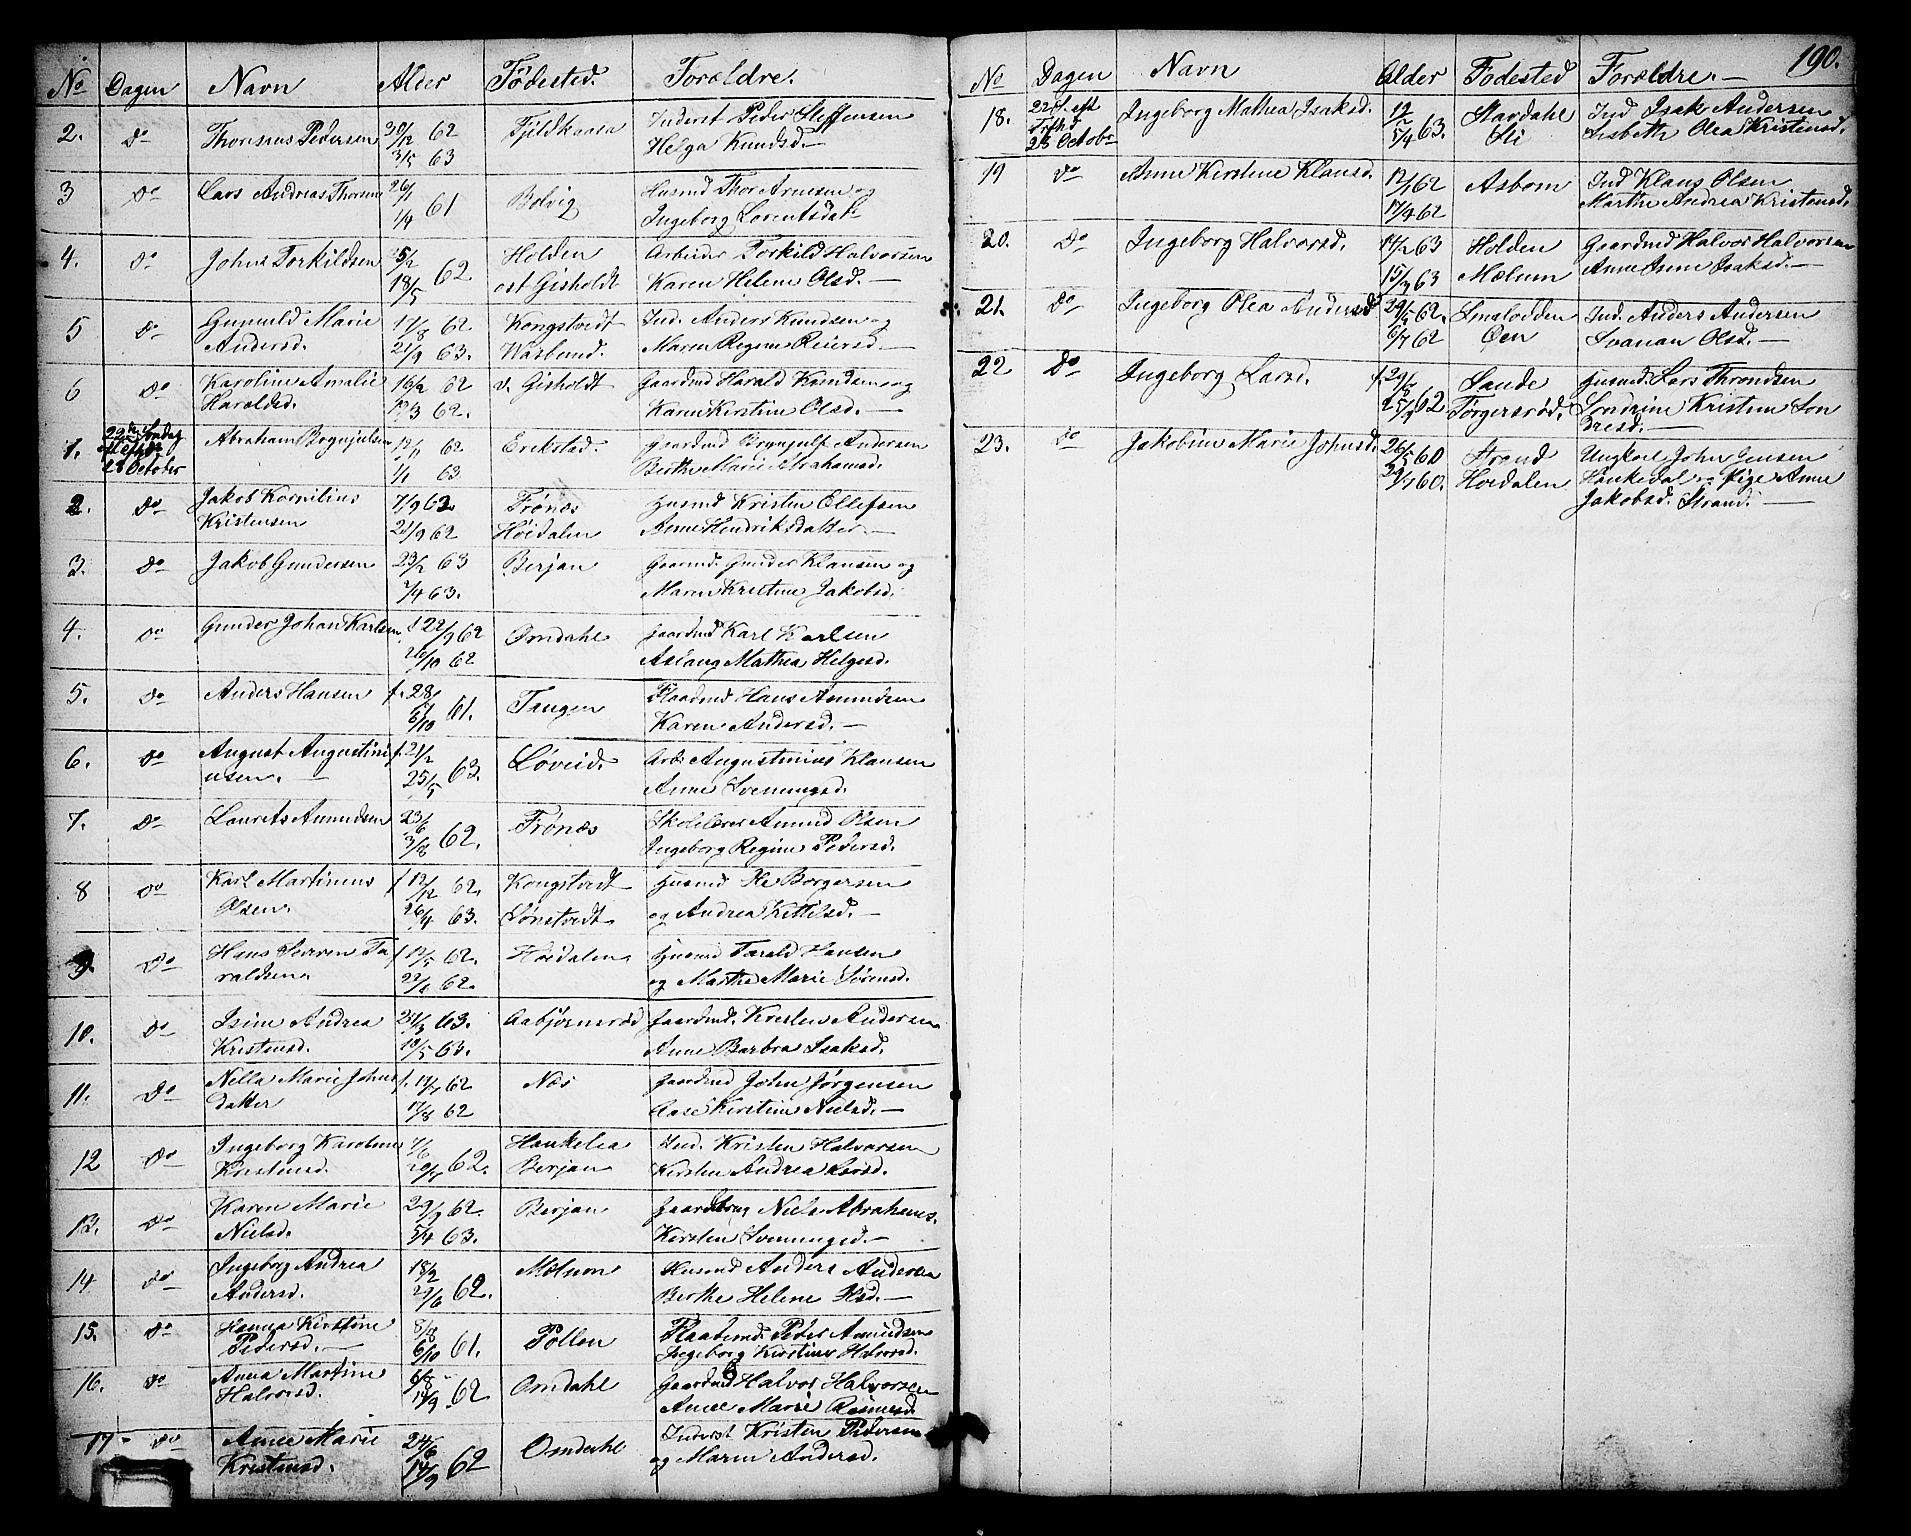 No Dagen Navn Alder Födested. Forældre.
2. Do Thorsnus Pedersen 30/12 62 Fjeldkaasa Inderst Peder Steffensen
3/5 63 Helga Knudsd.
3 Do Lars Andreas Thorsen 26/1 Bolvig Husmd Thor Arnesen og
1/4 61 Ingeborg Lorentsdatr
4. Do Johns Torkildsen 5/2 Holden Arbeider Torkild Halvorsen
18/5 62 ost Gisholdt Karen Helene Olsd.
5 Do Gunuld Marie 17/8 62 Kongstvedt Ind. Anders Knudsen og
Andersd. 21/9 63. Wasbund. Maren Regine Reiersd.
6 Do Karoline Amalie 16/2 62 v. Gisholdt Gaardmd Harald Knudsen og
Haraldsd. 17/3 62. Karen Kirstine Olsd.
1. Abraham Brynjulsen 12/11 62 Erikstad. Gaardmd Brynjulf Andersen
25 October 1/1 63 Berthe Marie Abrahamsd.
2. Do Jakob Kornilius 7/9 62 Frönæs Husmd Kristen Ellefsen
Kristensen 21/9 62 Höidalen Anne Henriksdatter
3. Do Jakob Gundersen 23/2 63 Berjan Gaardmd. Gunder Klausen og
7/4 63. Maren Kristine Jakobsd.
4. Do Gunder Johan Karlsen f. 22/9 62 Omdahl Gaardmd Karl Karlsen
26/10 62 Aslaug Mathea Helgesd.
5. Do Anders Hansen f. 28/ Tangen Plaadsmd Hans Amundsen
6/10 61. Karen Andersd.
6. Do August Augustini f. 21/2 Löveid. Arb. Augustinius Klausen
usen. 25/5 63. Anne Svenningsd.
7. Do Laurets Amundsen 23/6 Frönæs Skolelærer Amund Olsen
3/8 62. Ingeborg Regine Pedersd.
8 Do Karl Martinius f. 12/12 62. Kongstvedt Husmd Ole Borgersen
Olsen. 26/4 63. Lönstvedt og Andrea Kettilsd.
9. Do Hans Sörren Ta f. 12/5 62. Höidalen Husmd Tarald Hansen
raldsen 22/6 62. og Marthe Marie Sörensd.
10. Do Isine Andrea 21/3 63. Aabjörnsröd Gaardmd. Kristen Andersen
Kristensd. 10/5 63. Anne Barbra Isaksd.
11. Do Nella Marie Johns f. 17/7 62 Næs Gaardmd John Jörgensen
datter 17/8 62 Aase Kirstine Nielsd.
12 Do Ingeborg Karoline 7/6 Haukelia Ind. Kristen Halvorsen
Kristensd. 20/7 62. Berjan Kirsten Andrea Larsd.
13. Do Karen Marie 29/9 62. Berjan Gaardbrug Niels Abrahams.
Nielsd. 5/4 63. Kirsten Svenningsd.
14 Do Ingeborg Andrea 18/2 Mælum Husmd Anders Andersen
Andersd. 27/6 62. Berthe Helene Olsd.
15. Do Hanna Kirstine 8/8 Pollen Plaadsmd. Peder Amundsen
Pedersd. 6/10 61. Ingeborg Kirstine Halvorsd.
16. Do Anna Martine 6/8 Omdahl Gaardmd Halvor Halvorsen
Halvorsd. 14/9 62 Anne Marie Rasmusd.
17 Do Anne Marie 24/6 Omdahl Inderst Kristen Pedersen
Kristensd. 14/9 62 og Maren Andersd.
190.
No Dagen Navn Alder Födested Forældre.
18. 22 S. eft Ingeborg Mathea Isaksd. 12/2 Stavdahl Ind Isak Andersen
Trefhd 5/4 63. Eli Lisbeth Olea Kristensd.
25 Octobr
19 Do Anne Kirstine Klausd. 12/1 62 Asbom Ind Klaus Olsen
17/4 62 Marthe Andrea Kristensd.
20. Do Ingeborg Halvorsd. 14/2 63 Holden Gaardmd Halvor Halvorsen
15/3 63 Mælum Anne Isine Isaksd.
21. Do Ingeborg Olea Andersd 29/5 62. Smalodden Ind. Anders Andersen
6/7 62 Öen Svanau Olsd.
22 Do Ingeborg Larsd. f. 29/ Sande Husmd. Lars Throndsen
25/ 62 Torgersröd. Sondrine Kristine Son
dresd.
23. Do Jakobine Marie Johnsd. 26/5 60 Strand Ungkarl John Jensen
29/7 60. Höidalen Haukedal og Pige Anne
Jakobsd. Strand.